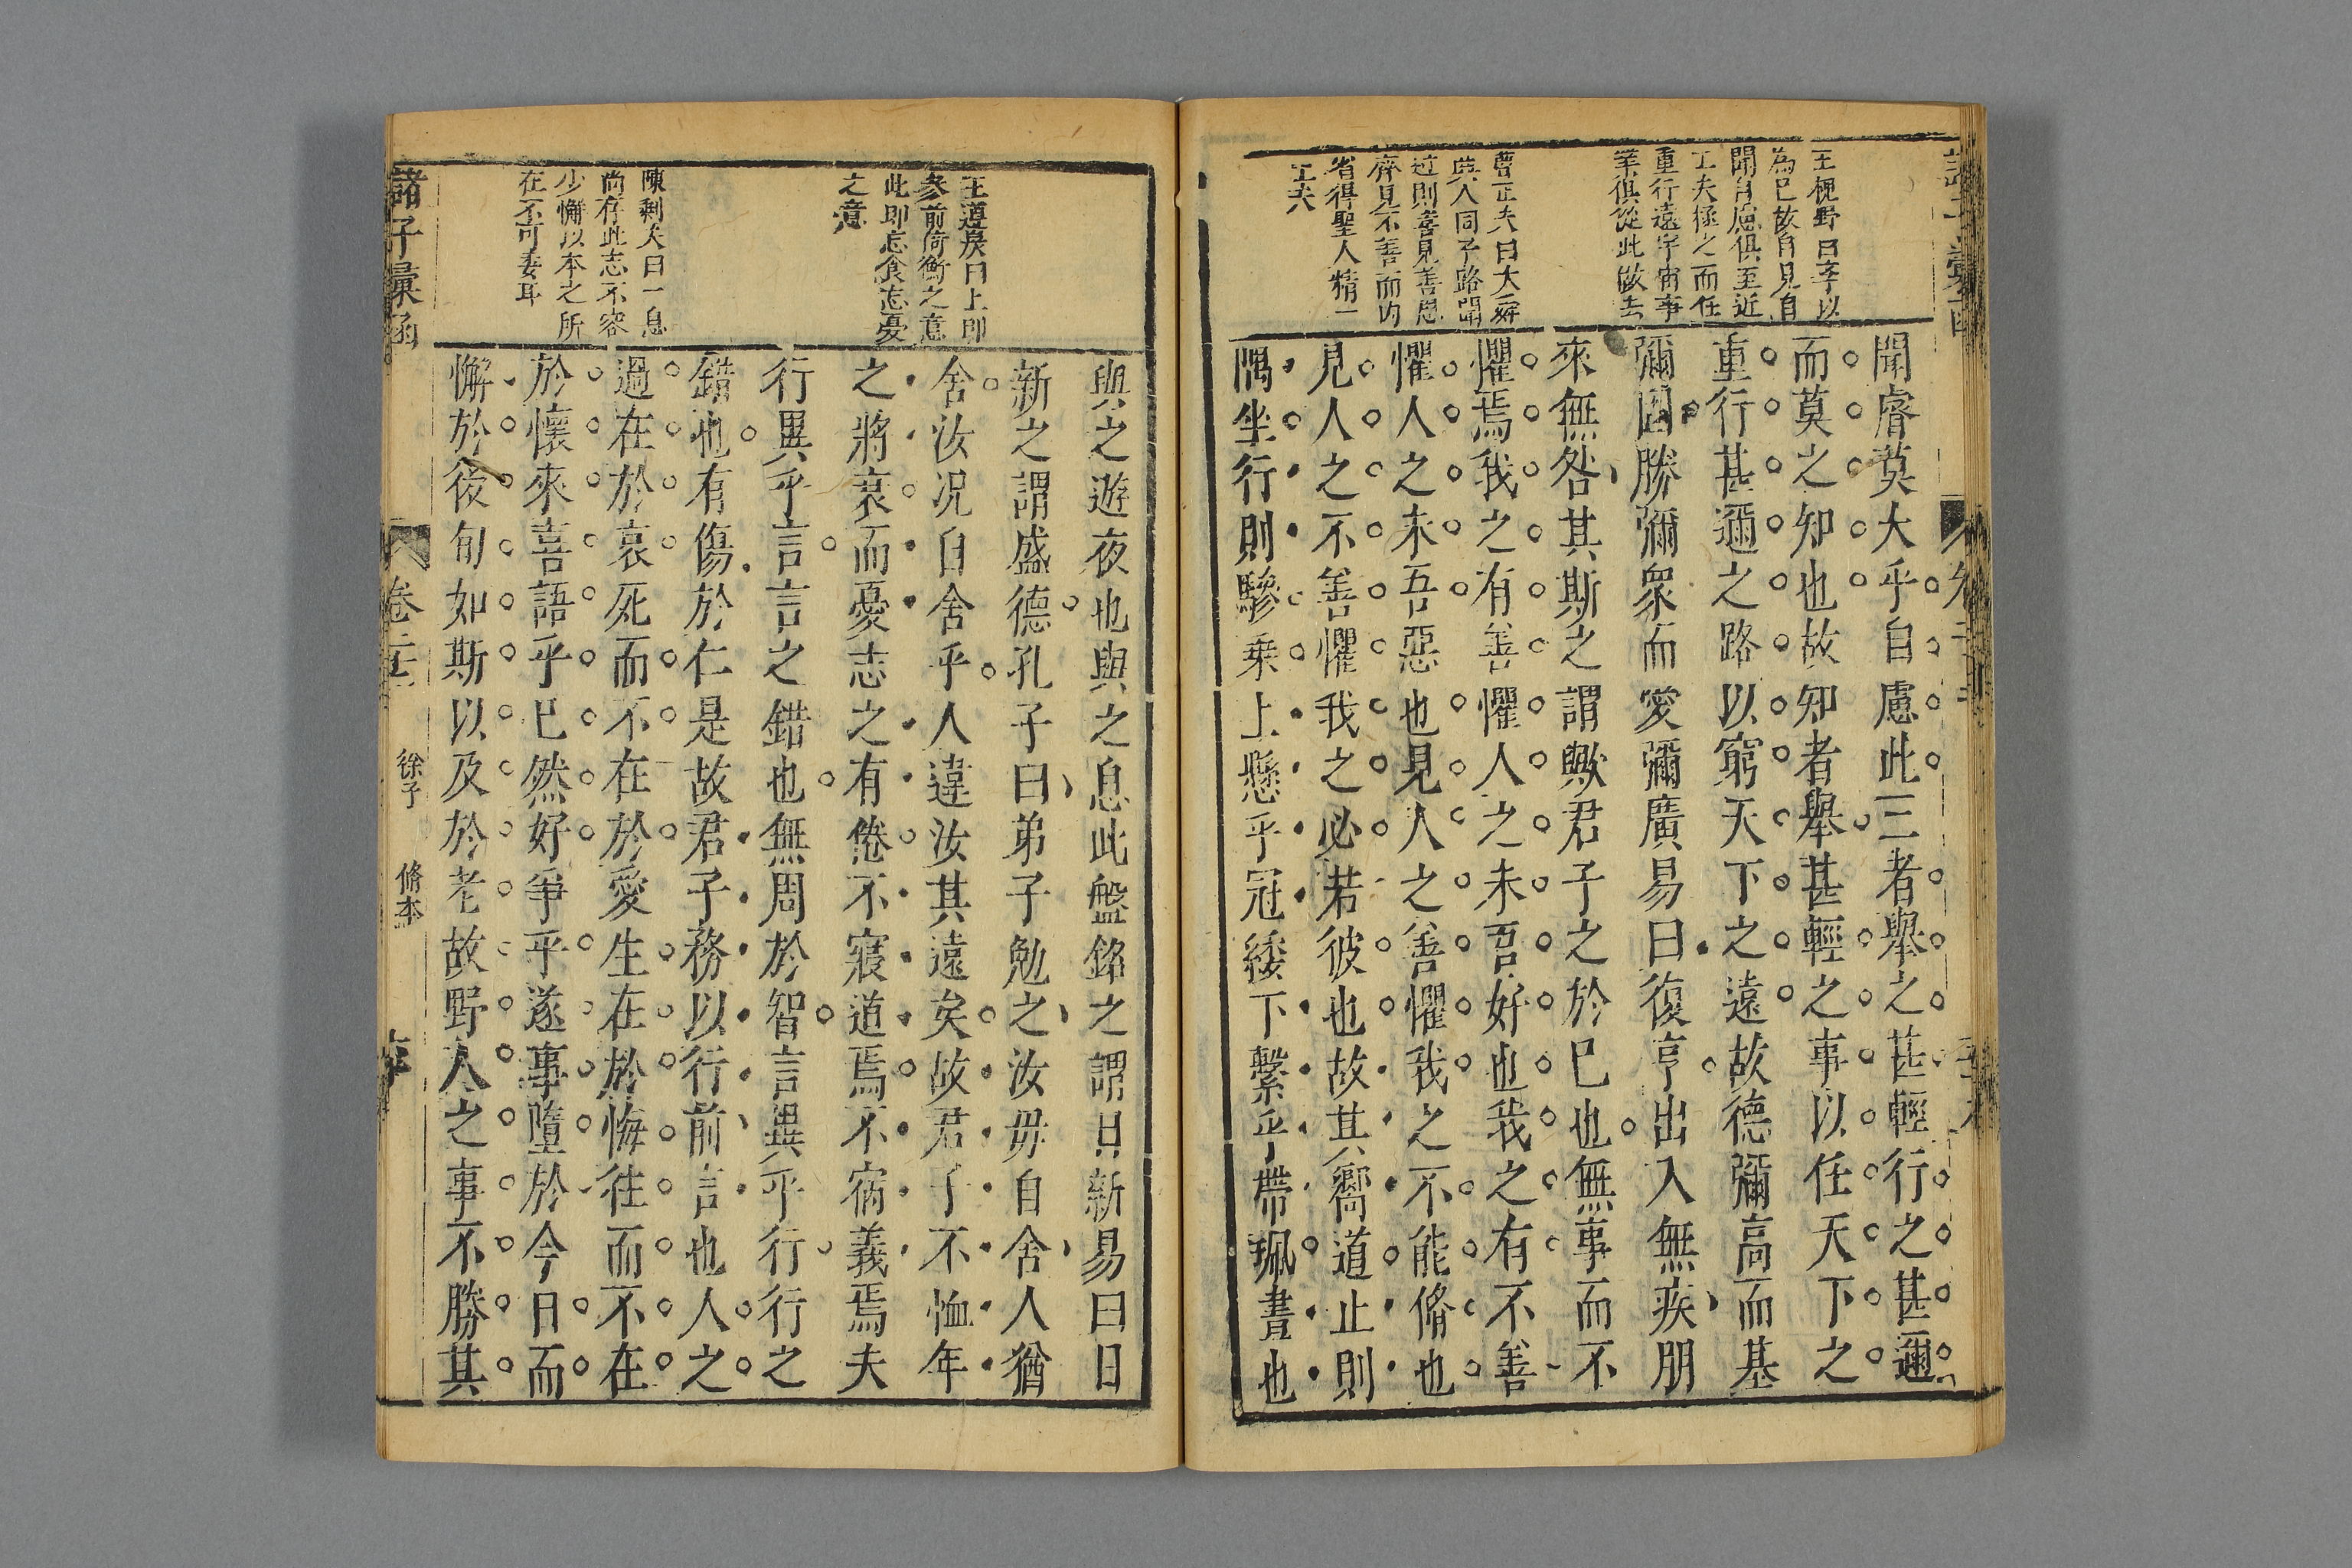 王梘野曰字以
為已故自見自
聞自慮俱至近
工夫極之而任
重行遠宇宙事
業俱從此做去
曹正夫曰大舜
與人同子路聞
過則喜見善思
齊見不善而內
省得聖人精一
工夫
聞睿莫大乎自慮此三者舉之甚輕行之甚邇
而莫之知也故知者舉甚輕之事以任天下之
重行甚邇之路以窮天下之遠故德彌高而基
彌固勝彌眾而愛彌廣易曰復亨出入無疾朋
來無咎其斯之謂歟君子之於已也無事而不
懼焉我之有善懼人之未吾好也我之有不善
懼人之未吾惡也見人之善懼我之不能脩也
見人之不善懼我之必若彼也故其嚮道止則
隅坐行則驂乗上懸乎冠緌下繫乎帶珮晝也
王遵岩曰上即
參前倚衡之意
此即忘食忘憂
之意
陳剩夫曰一息
尚存此志不容
少懈以本之所
在不可委耳
與之遊夜也與之息此盤銘之謂日新易曰日
新之謂盛德孔子曰弟子勉之汝毋自舍人猶
舍汝况自舍乎人違汝其遠矣故君子不恤年
之將衰而憂志之有倦不寢道焉不宿義焉夫
行異乎言言之錯也無周於智言異乎行行之
錯也有傷於仁是故君子務以行前言也人之
過在於哀死而不在於愛生在於悔往而不在
於懷來喜語乎已然好爭乎遂事墮於今日而
懈於後旬如斯以及於老故野人之事不勝其
諸子彙函
卷二十一
徐子
脩本